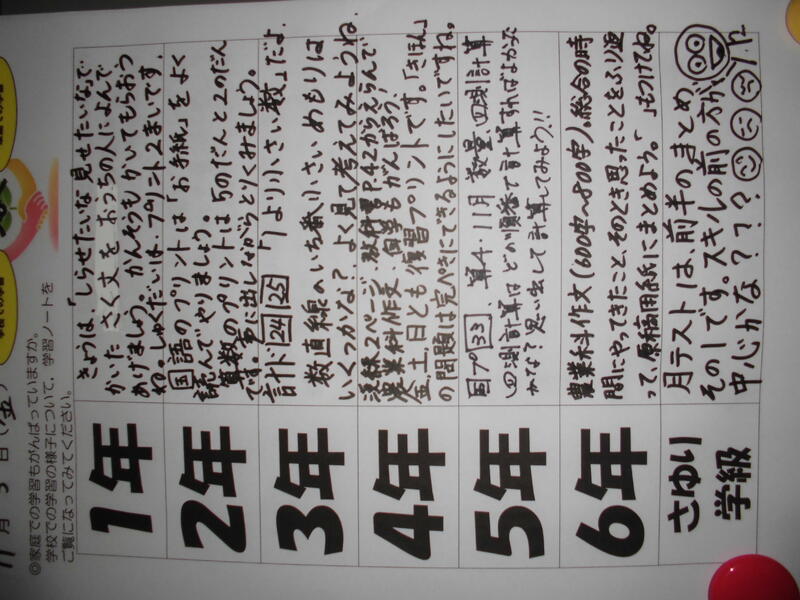 11月5日(金)
◎家庭での学習もがんばっていますか。
学校での学習の様子について、学習ノートを
ご覧になってみてください。
1年
きょうは、「しらせたいな 見せたいな」で
かいた さく文を おうちの人によんで
あげましょう。かんそうも かいてもらおう
ね。しゅくだいは、プリント2まいです。
2年
国語のプリントは「お手紙」をよく
読んでやりましょう。
算数のプリントは5のだんと2のだん
です。声に出しながらとりくみましょう。
3年
計ド24 25 「1より小さい数」だよ。
数直線のいち番小さいめもりは
いくつかな?よく見て考えてみようね。
4年
漢練2ページ、教科書P.42からえらんで
農業科作文、自学もがんばろう!
金、土、日とも復習プリントです。「きほん」
の問題は完ぺきにできるようにしたいですね。
5年
国プ33、算4・11月 数量、四則計算
四則計算はどの順番で計算すればよかった
かな?思い出して計算してみよう!!
6年
農業科作文(600字〜800字)。総合の時
間にやってきたこと、そのとき思ったことをふり返
って、原稿用紙にまとめよう。「 」もつけてね。
さゆり
学級
月テストは、前半のまとめ
その1です。スキルの前の方が
中心かな???